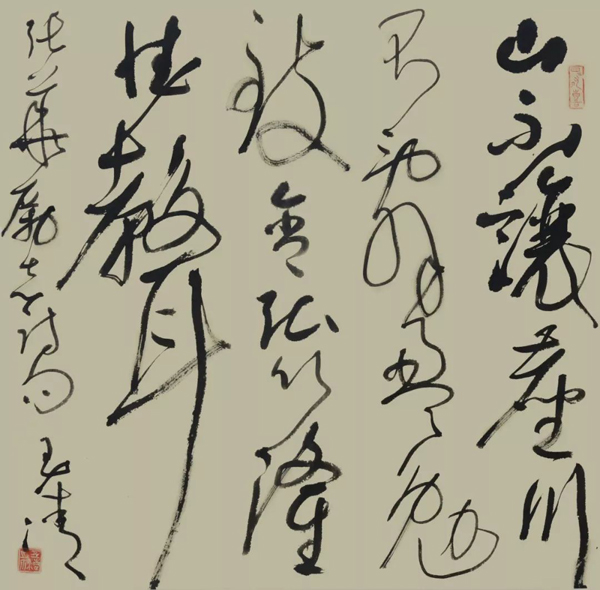 山不讓塵川
不辭盈勉
爾含弘以隆
德聲
張華勵志詩句